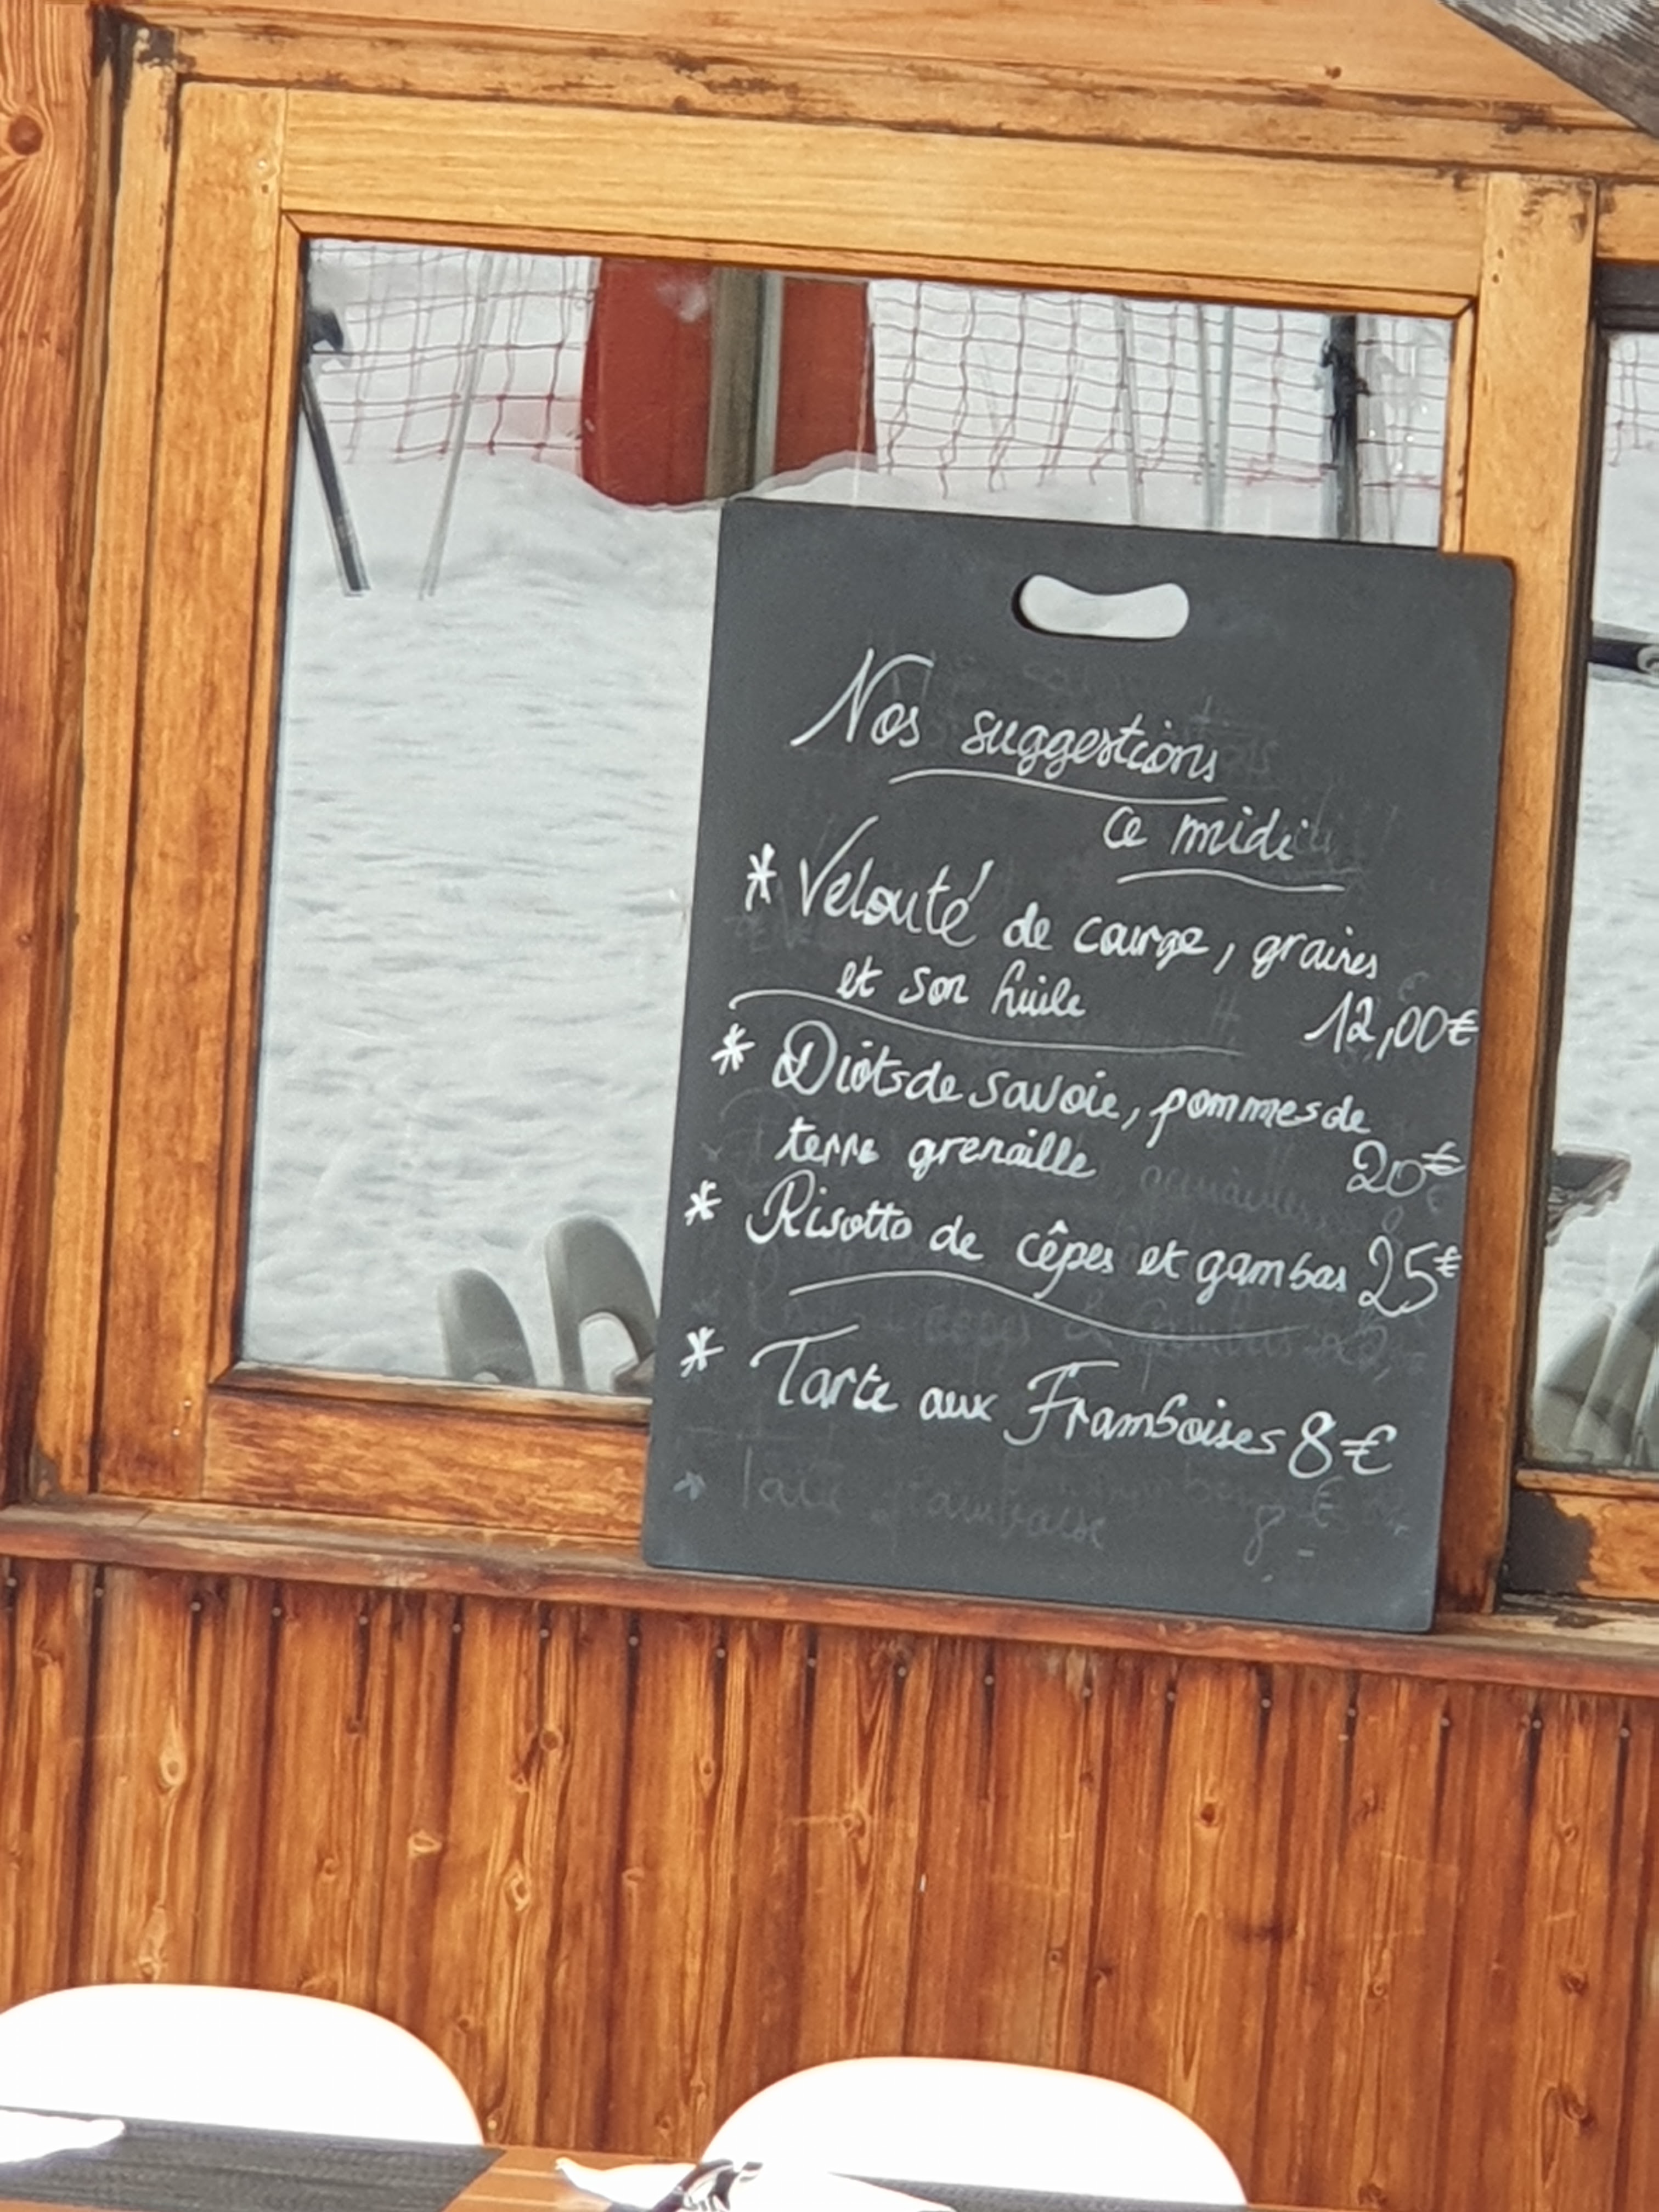 Nos suggestions
ce midi
* Velouté de courge, graines
et son huile 12,00€
* Diots de savoie, pommes de
terre grenaille 20€
* Risotto de cêpes et gambas 25€
* Tarte aux Framboises 8€